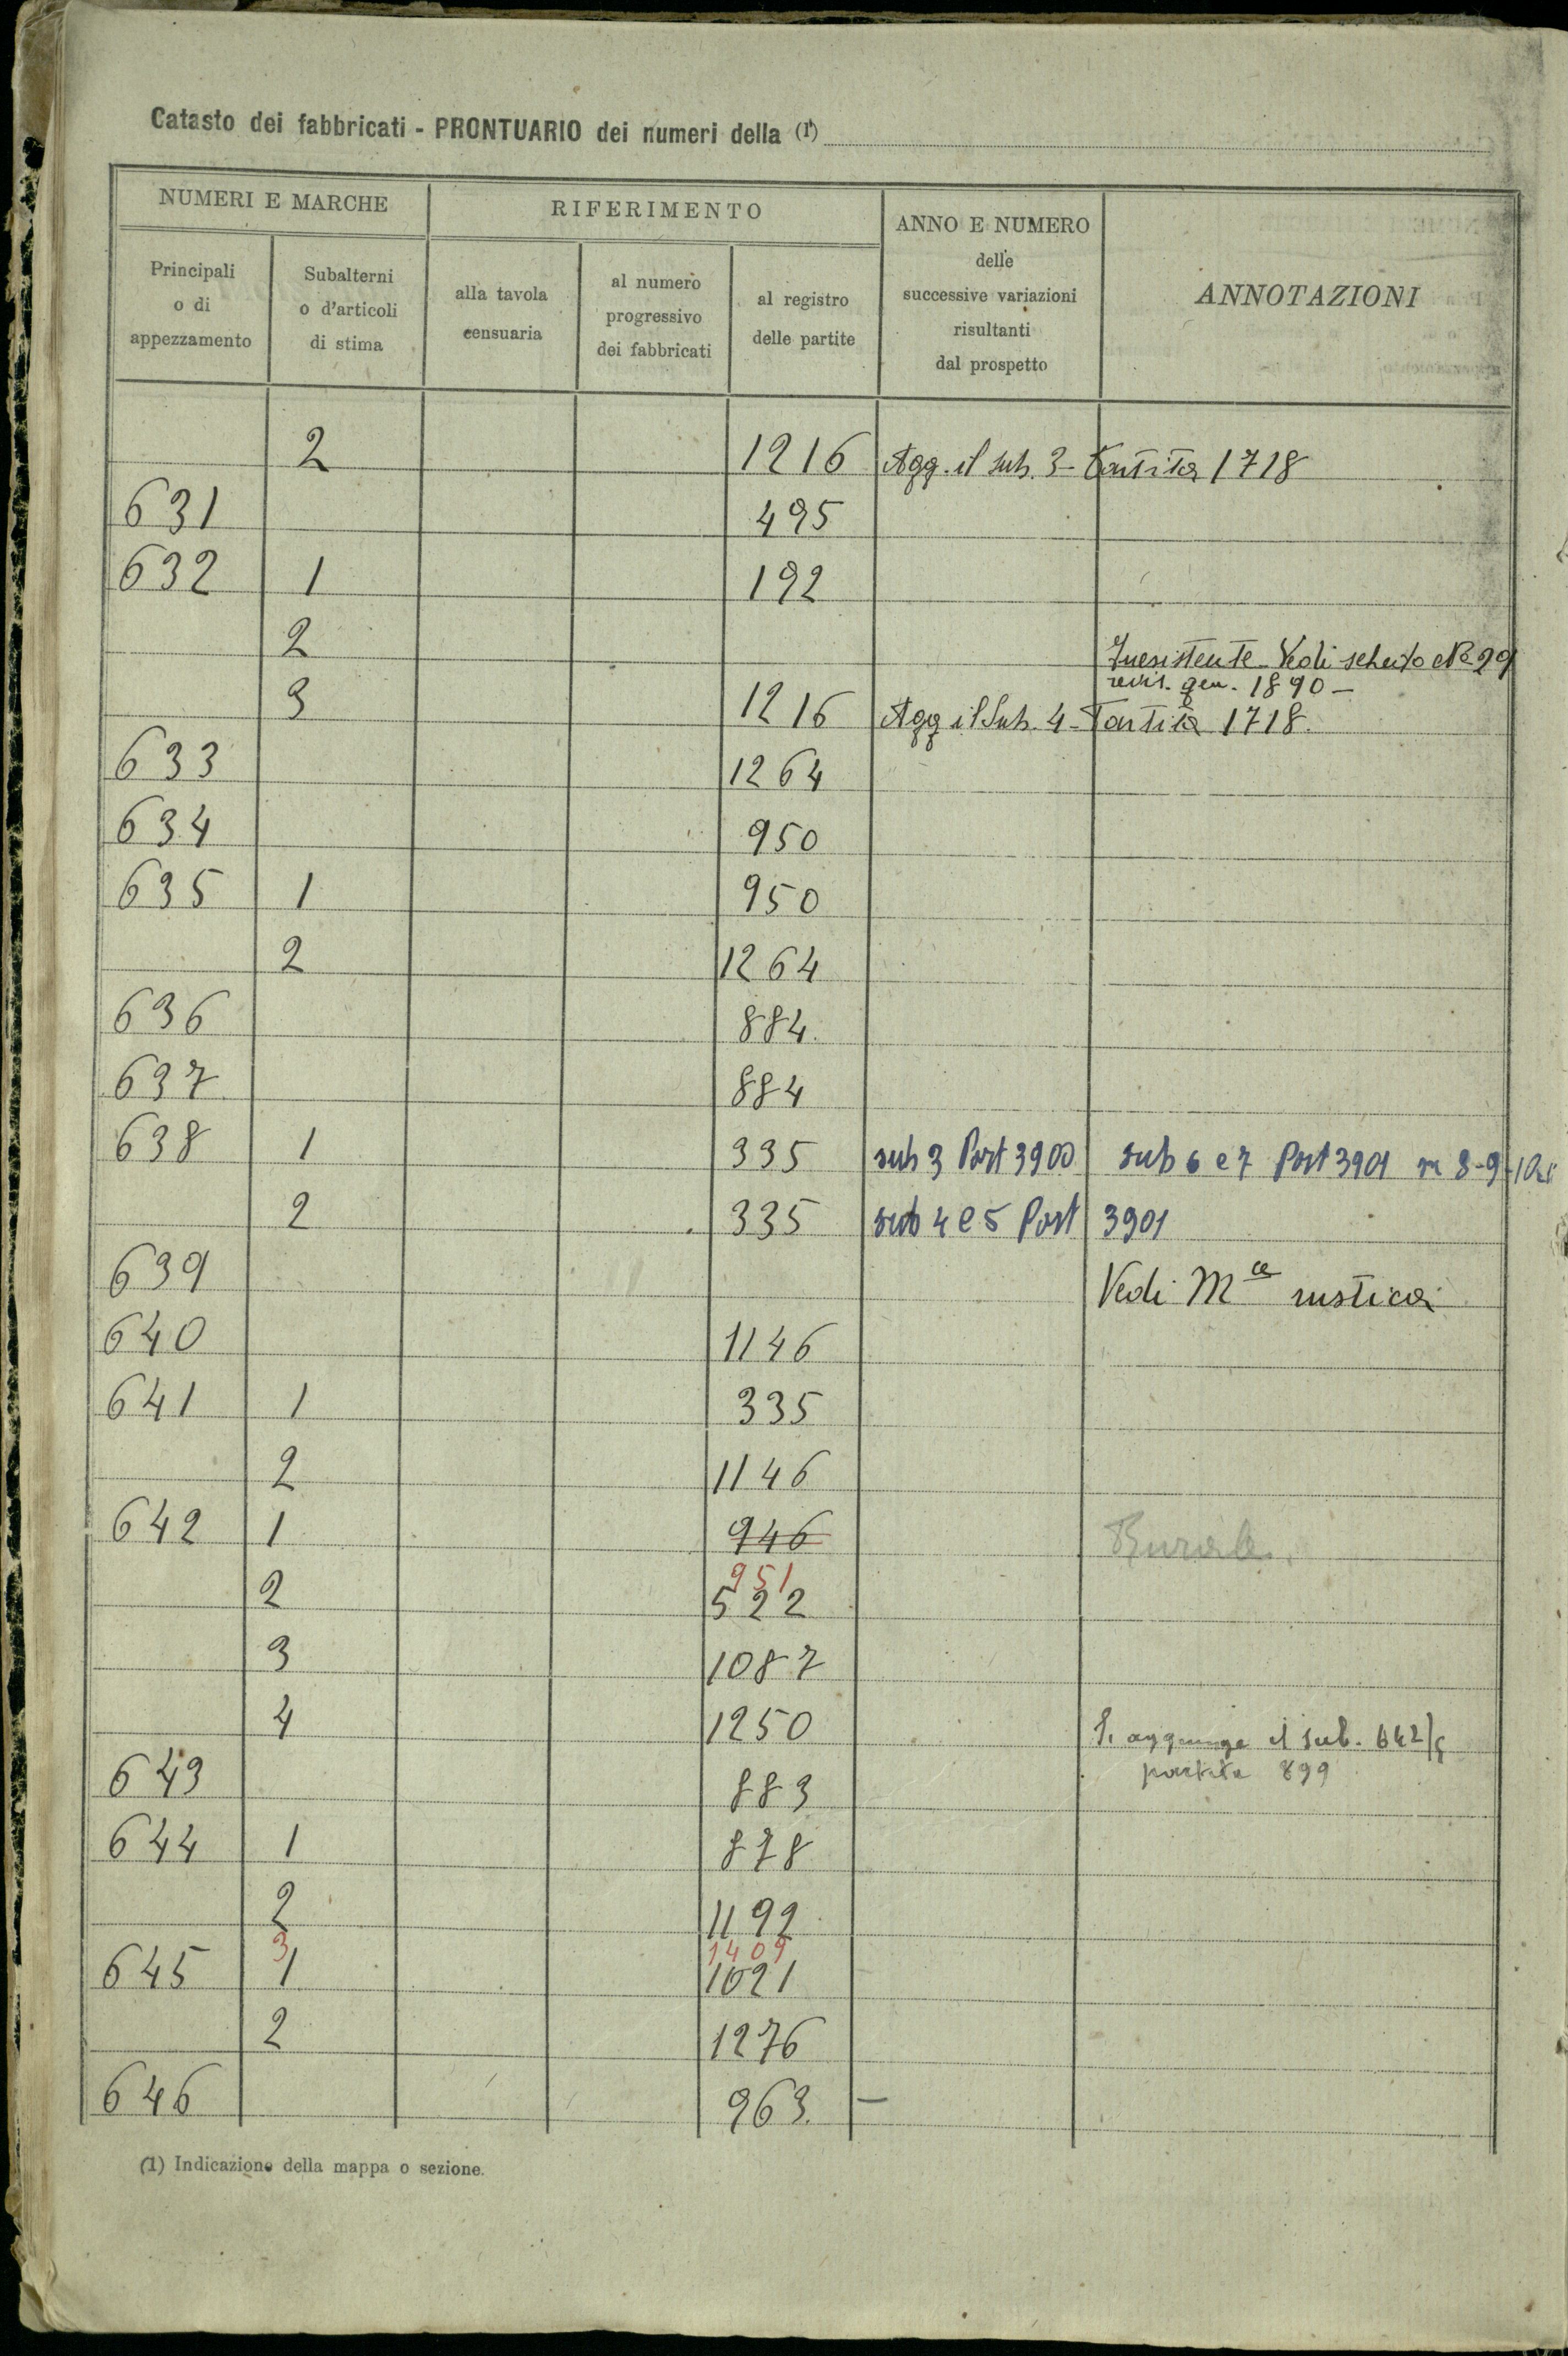 Catasto dei fabbricati - PRONTUARIO dei numeri della (1)
NUMERI E MARCHE
RIFERIMENTO
ANNO E NUMERO
delle
successive variazioni
risultanti
dal prospetto
ANNOTAZIONI
Principali
o di
appezzamento
Subalterni
o d'articoli
di stima
alla tavola
censuaria
al numero
progressivo
dei fabbricati
al registro
delle partite
2 1216 Agg. il sub. 3 - Partita 1718
631 495
632 1 192
2 Inesistente - Vedi scheda No 29
revis. gen. 1890 -
3 1216 Agg il Sub. 4 - Partita 1718.
633 1264
634 950
635 1 950
2 1264
636 884.
637 884
638 1 335 sub 3 Part 3900 sub 6 e 7 Part 3901 8-9-10
2 335 sub 4 e 5 Part 3901
639 Vedi Mce rustica
640 1146
641 1 335
2 1146
642 1 946 Rurale.
951
2 522
3 1087
4 1250 Si aggiunge il sub. 642/5
partita 899
643 883
644 1 878
2 1192
3 1409
645 1 1021
2 1276
646 963. -
(1) Indicazione della mappa o sezione.